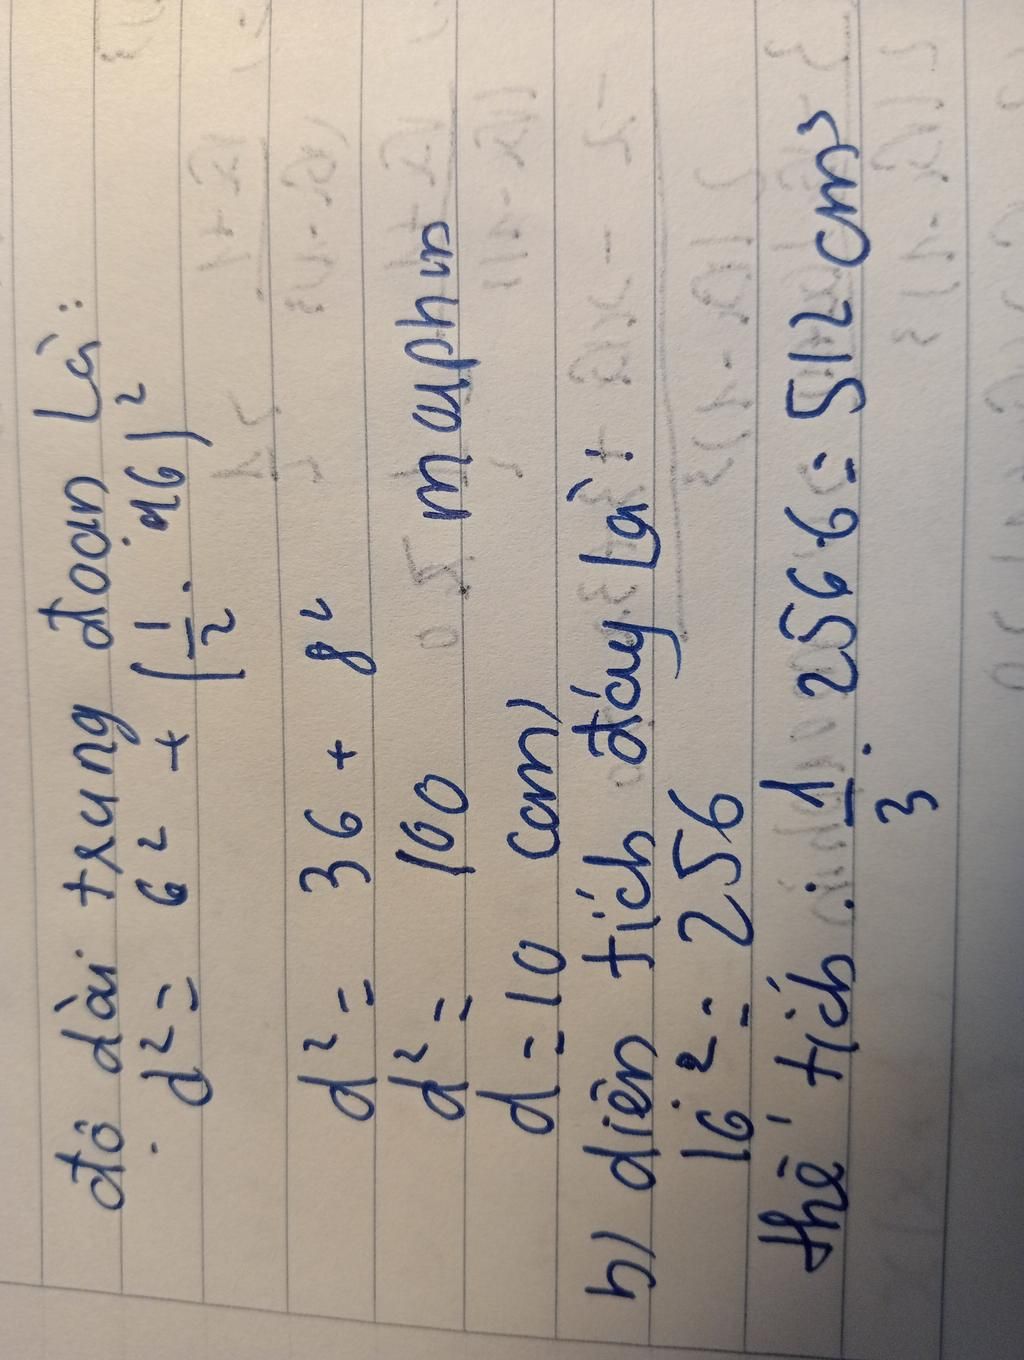 độ dài trung đoạn là:
d² = 6² + (1/2 . 16)²
d² = 36 + 8²
d² = 100 mauphin
d = 10 cm)
b) diện tích đáy là:
16² = 256
thể tích : 1/3 . 256.6 = 512 cm³